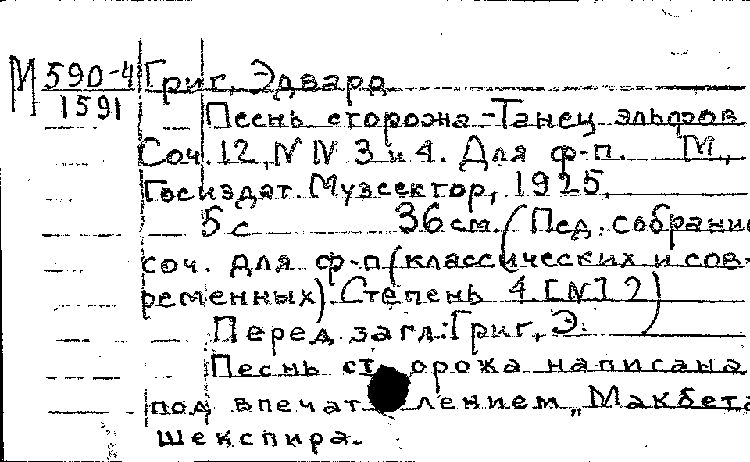 М 590-4 Григ, Эдвард
1591
Песнь сторожа - Танец эльфов
Соч. 12, N N 3 и 4. Для ф-п. М.,
Госиздат. Музсектор, 1925.
5 с 36 см. (Пед. собрание
соч. для ф-п (классических и сов-
ременных). Степень 4. [N 12)
Перед загл: Григ, Э.
Песнь сторожа написана
под впечатлением „Макбета
Шекспира.